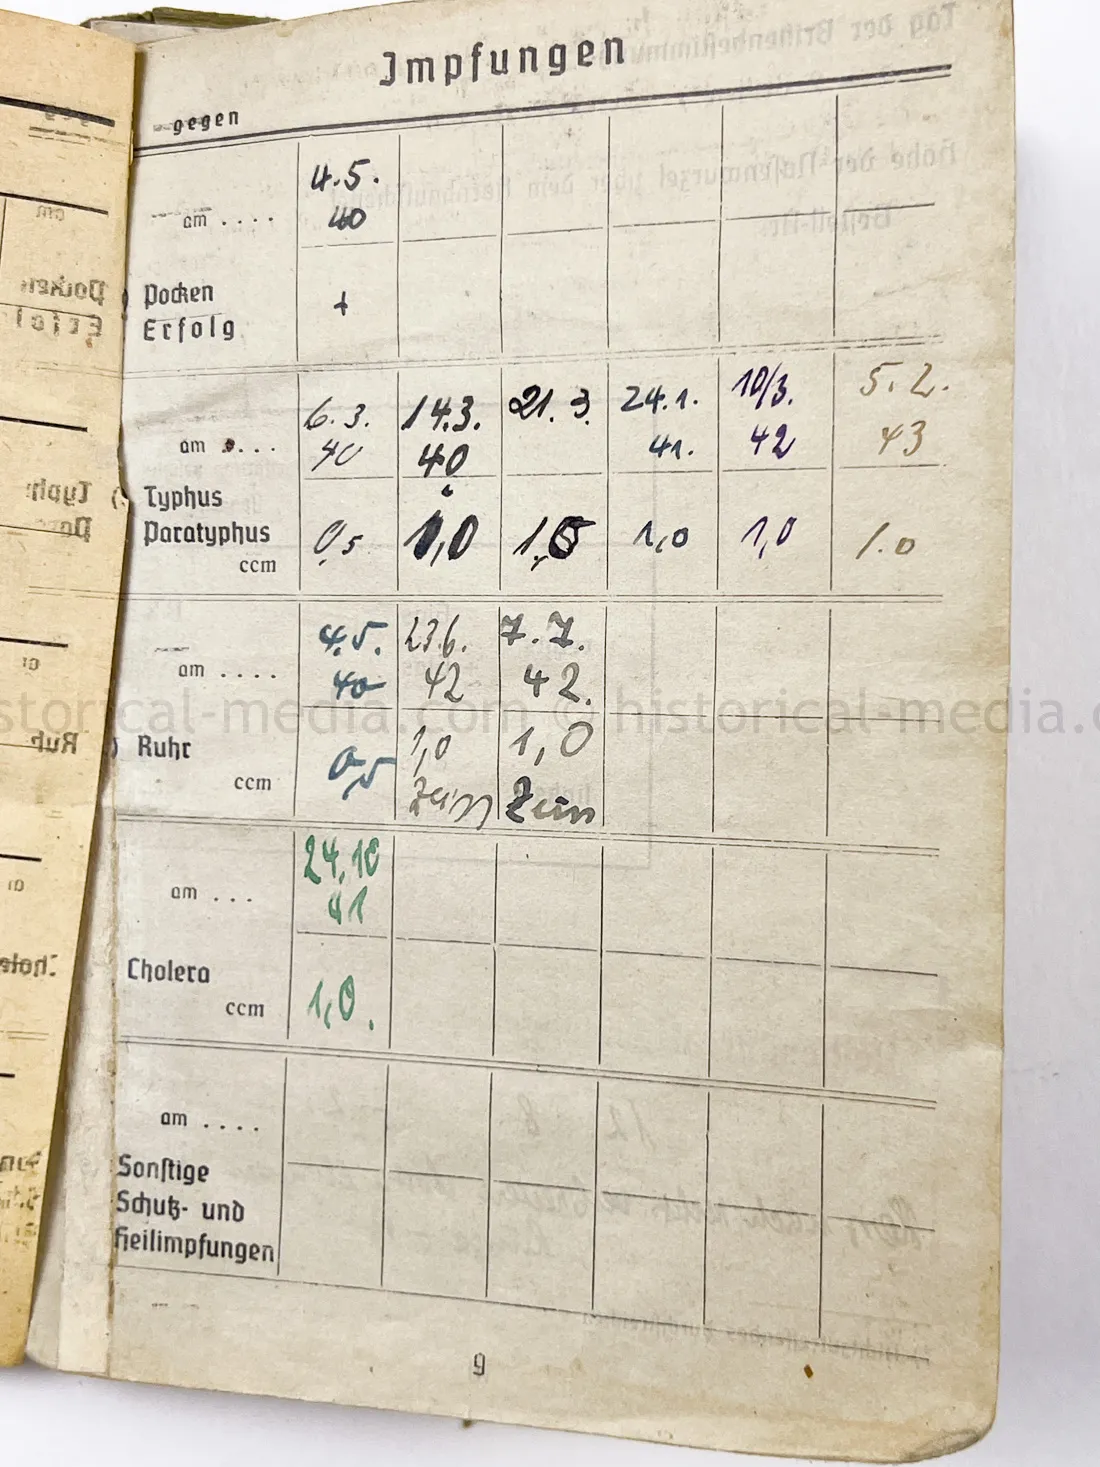 Impfungen
gegen
4.5.
am . . . . 40
Pocken
Erfolg +
6.3. 14.3. 21.3. 24.1. 10/3. 5.2.
am . . . . 40 40 41. 42 43
Typhus
Paratyphus 0,5 1,0 1,0 1,0 1.0
ccm
4.5. 23.6. 7.7.
am . . . . 40 42 42.
historical-media.com © historical-media.com
Ruhr 0,5 1,0 1,0
ccm
24.10
am . . . 41
Cholera
ccm 1,0.
am . . . .
Sonstige
Schutz- und
Heilimpfungen
9